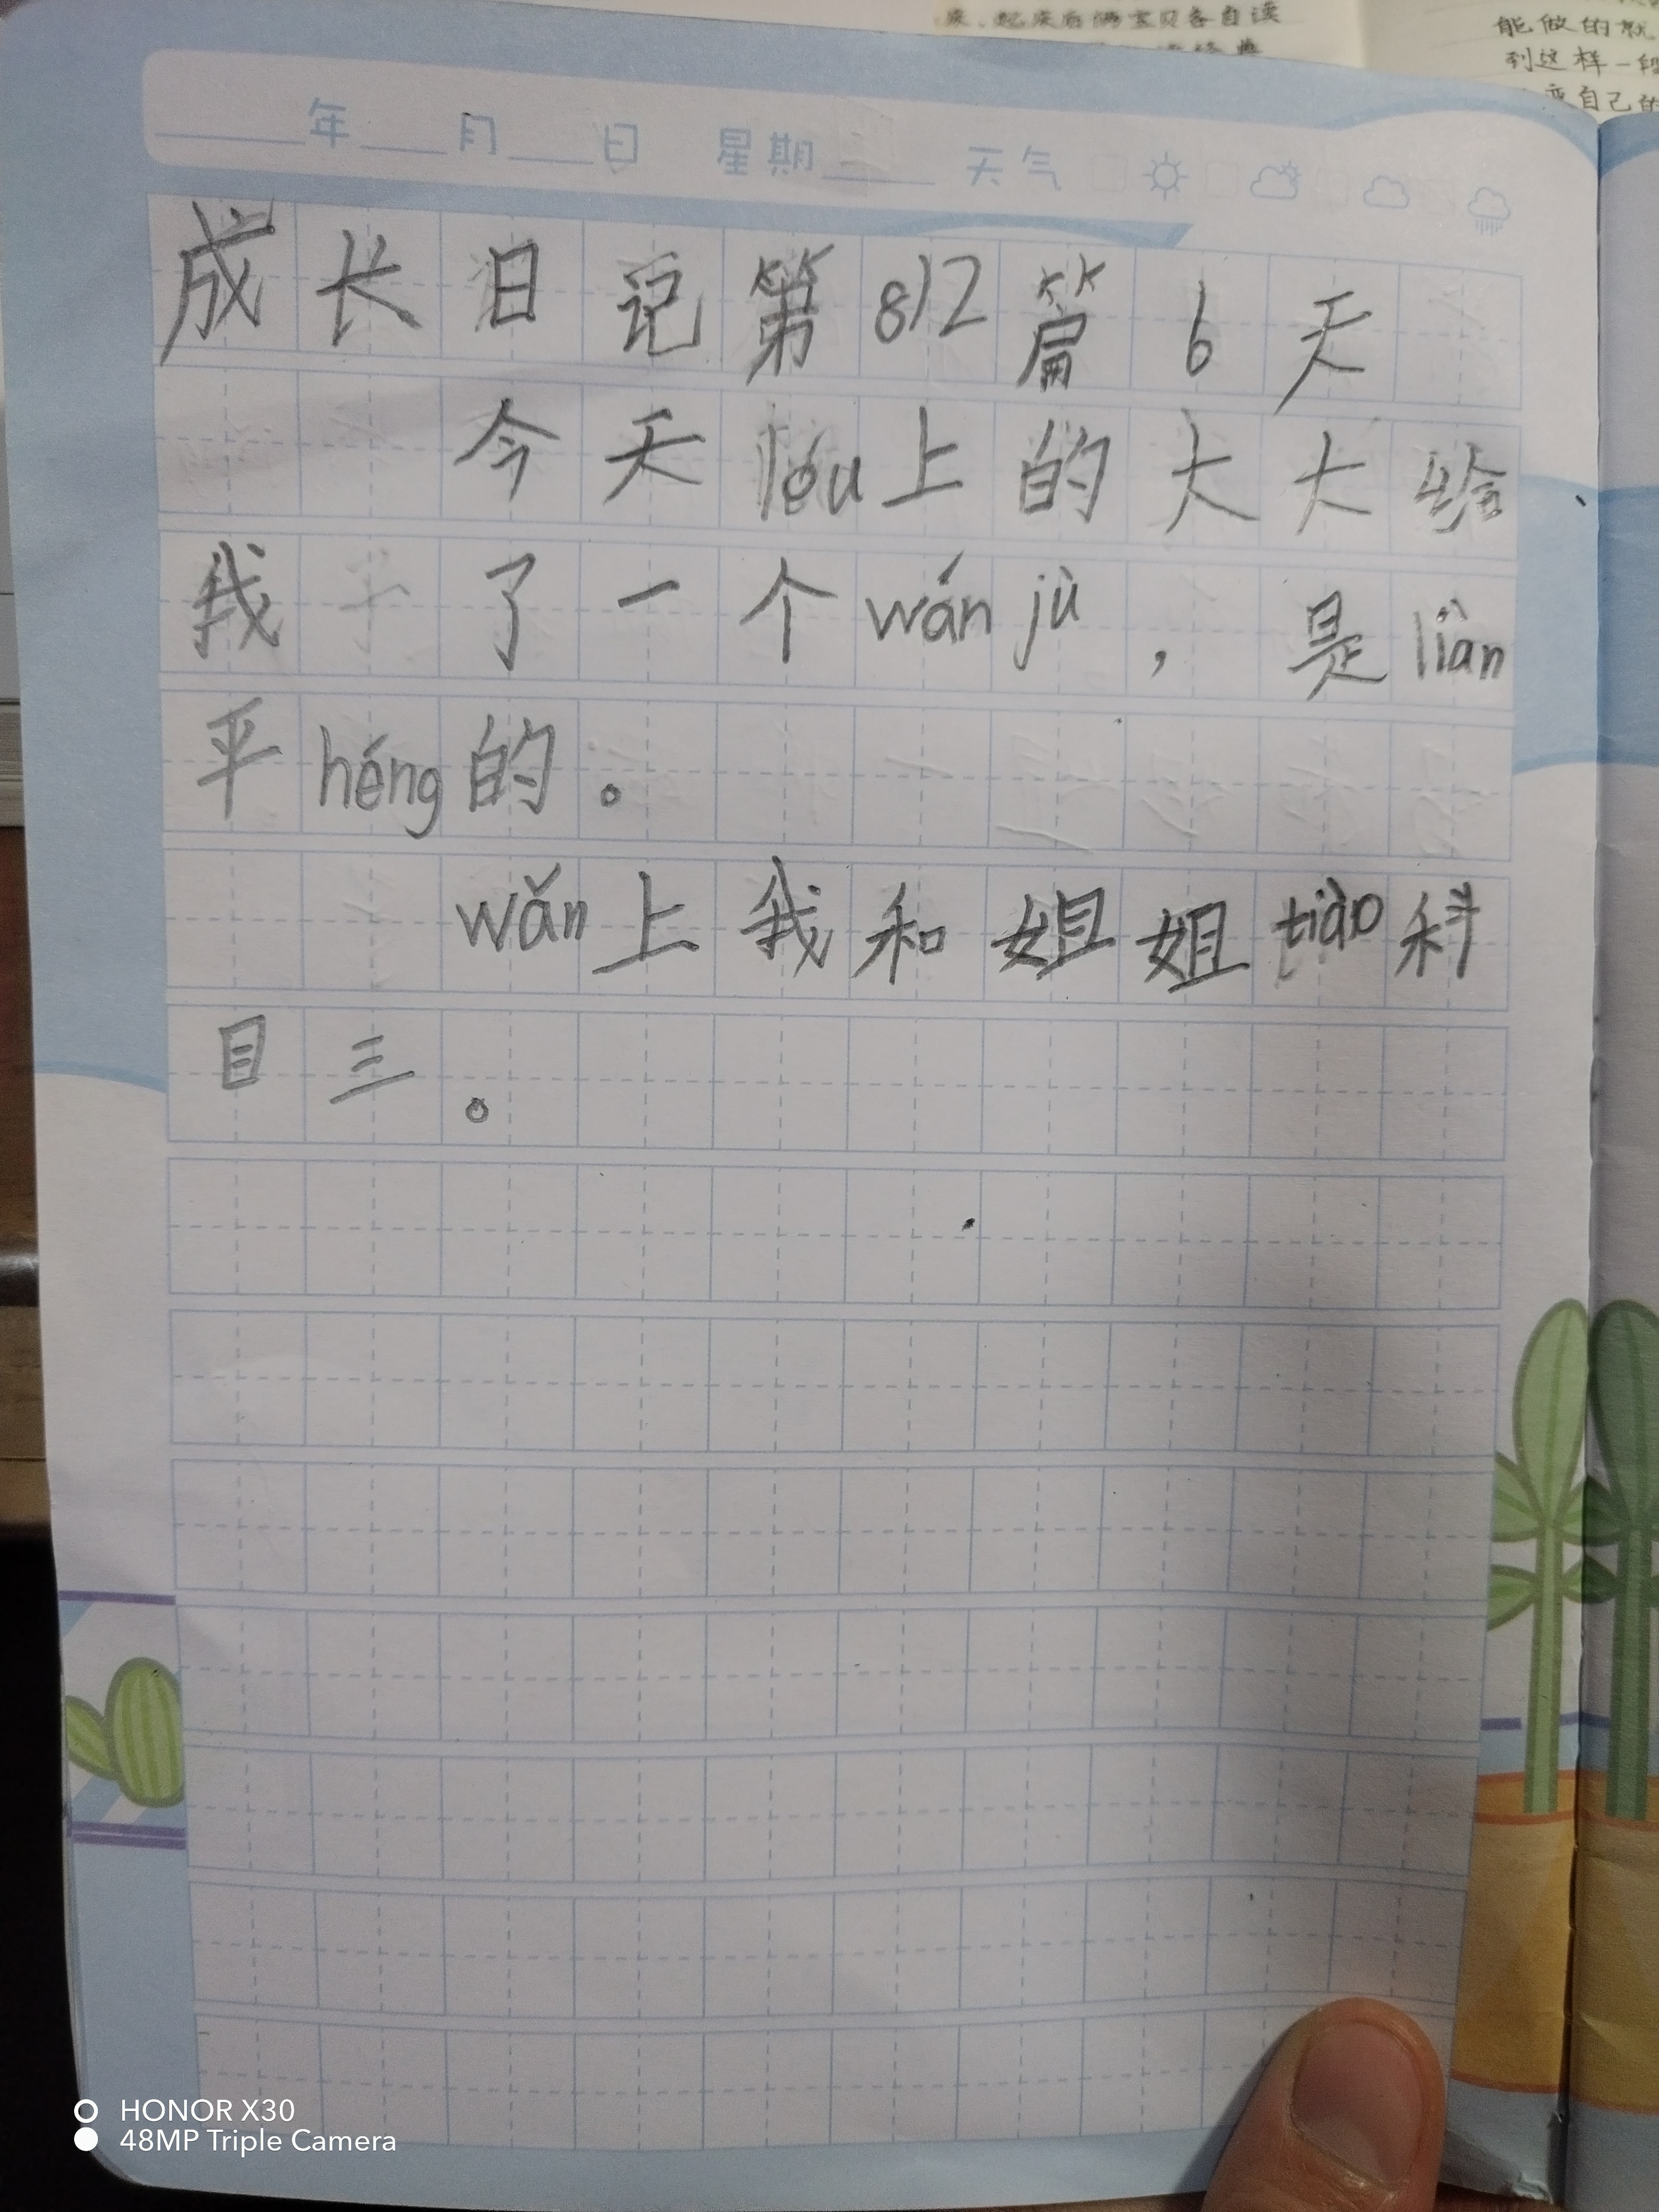 能做的就
到这样一段
变自己的
____年___月___日 星期____ 天气
成长日记第812篇6天
今天lóu上的大大给
我了一个wán jù，是liàn
平héng的。
wǎn上我和姐姐tiào科
目三。
HONOR X30
48MP Triple Camera